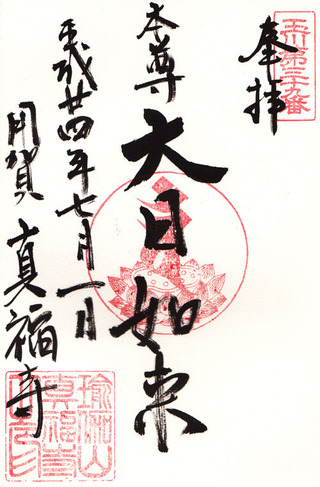 玉川第三十九番
奉拝
本尊
大日如来
平成廿四年七月一日
用賀 真福寺
瑜伽山
真福寺